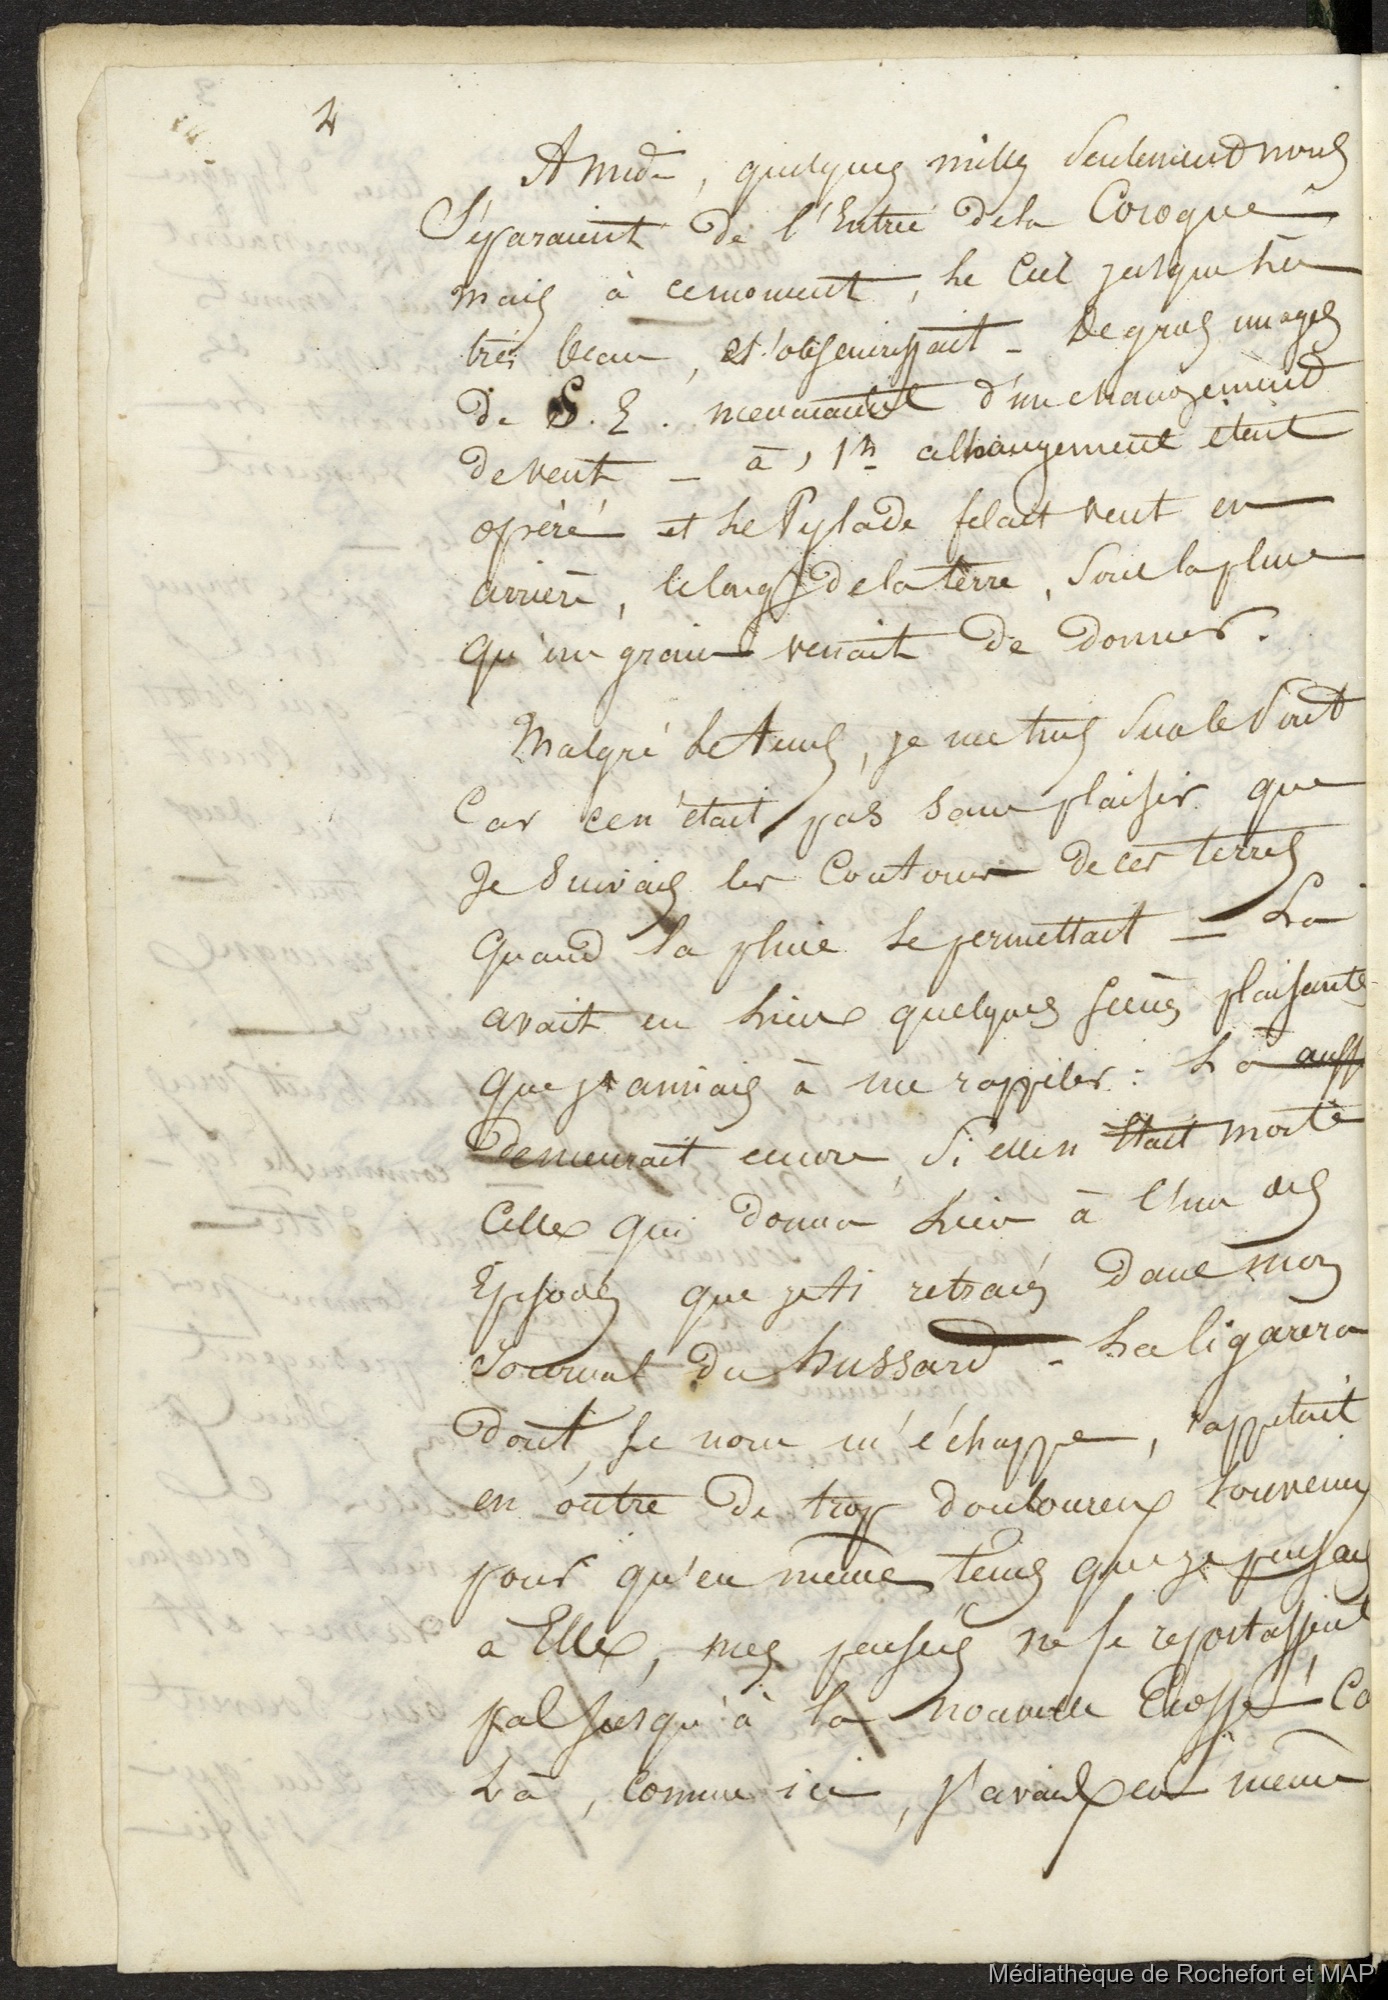 4
A Midi, quelques milles seulement nous
Séparaient de l'Entrée de la Corogne
mais à ce moment, le Ciel jusque là
très beau, s'obscurcissait _ De gros nuages
de S. E. menaçaient d'un changement
de vent _ à 1h ce changement était
opéré et le Pylade filait vent en
arrière, le long de la terre, sous la pluie
qu'un grain venait de donner.
Malgré le tems, je me tins sur le Pont
Car ce n'était pas sans plaisir que
Je suivais les Contours de ces terres
quand la pluie le permettait _ Là
avait eu lieu quelques scènes plaisantes
que j'aimais à me rappeler : Là aussi
demeurait encore, si elle n'était morte
Celle qui donna lieu à l'un des
Episodes que j'ai retracés dans mon
Journal du hussard _ La Cigarera
dont le nom m'échappe, rappelait
en outre de trop douloureux souvenirs
pour qu'en même tems que je pensais
a Elle, mes pensées ne se reportassent
pas jusqu'à la nouvelle Ecosse. Ca
Là, comme ici, j'avais eu même
Médiathèque de Rochefort et MAP